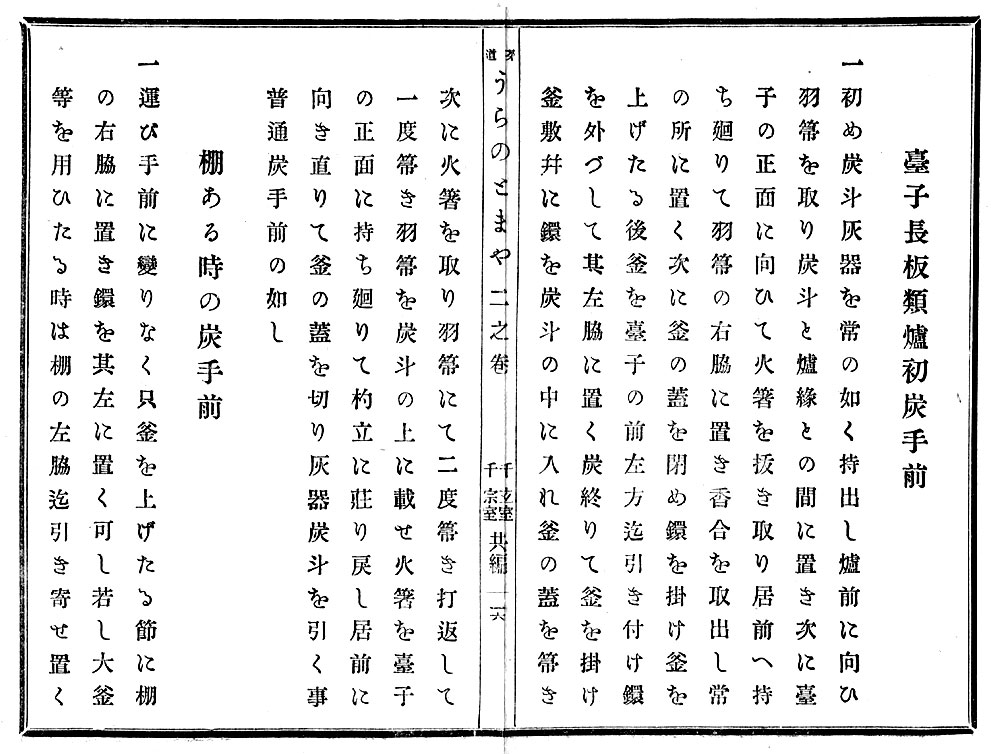 臺子長板類爐初炭手前
一初め炭斗灰器を常の如く持出し爐前に向ひ
羽箒を取り炭斗と爐緣との間に置き次に臺
子の正面に向ひて火箸を拔き取り居前へ持
ち廻りて羽箒の右脇に置き香合を取出し常
の所に置く次に釜の蓋を閉め鐶を掛け釜を
上げたる後釜を臺子の前左方迄引き付け鐶
を外づして其左脇に置く炭終りて釜を掛け
釜敷幷に鐶を炭斗の中に入れ釜の蓋を箒き
茶道 うらのとまや 二之卷 千玄室 千宗室 共編 一六
次に火箸を取り羽箒にて二度箒き打返して
一度箒き羽箒を炭斗の上に載せ火箸を臺子
の正面に持ち廻りて杓立に莊り戾し居前に
向き直りて釜の蓋を切り灰器炭斗を引く事
普通炭手前の如し
棚ある時の炭手前
一運び手前に變りなく只釜を上げたる節に棚
の右脇に置き鐶を其左に置く可し若し大釜
等を用ひたる時は棚の左脇迄引き寄せ置く